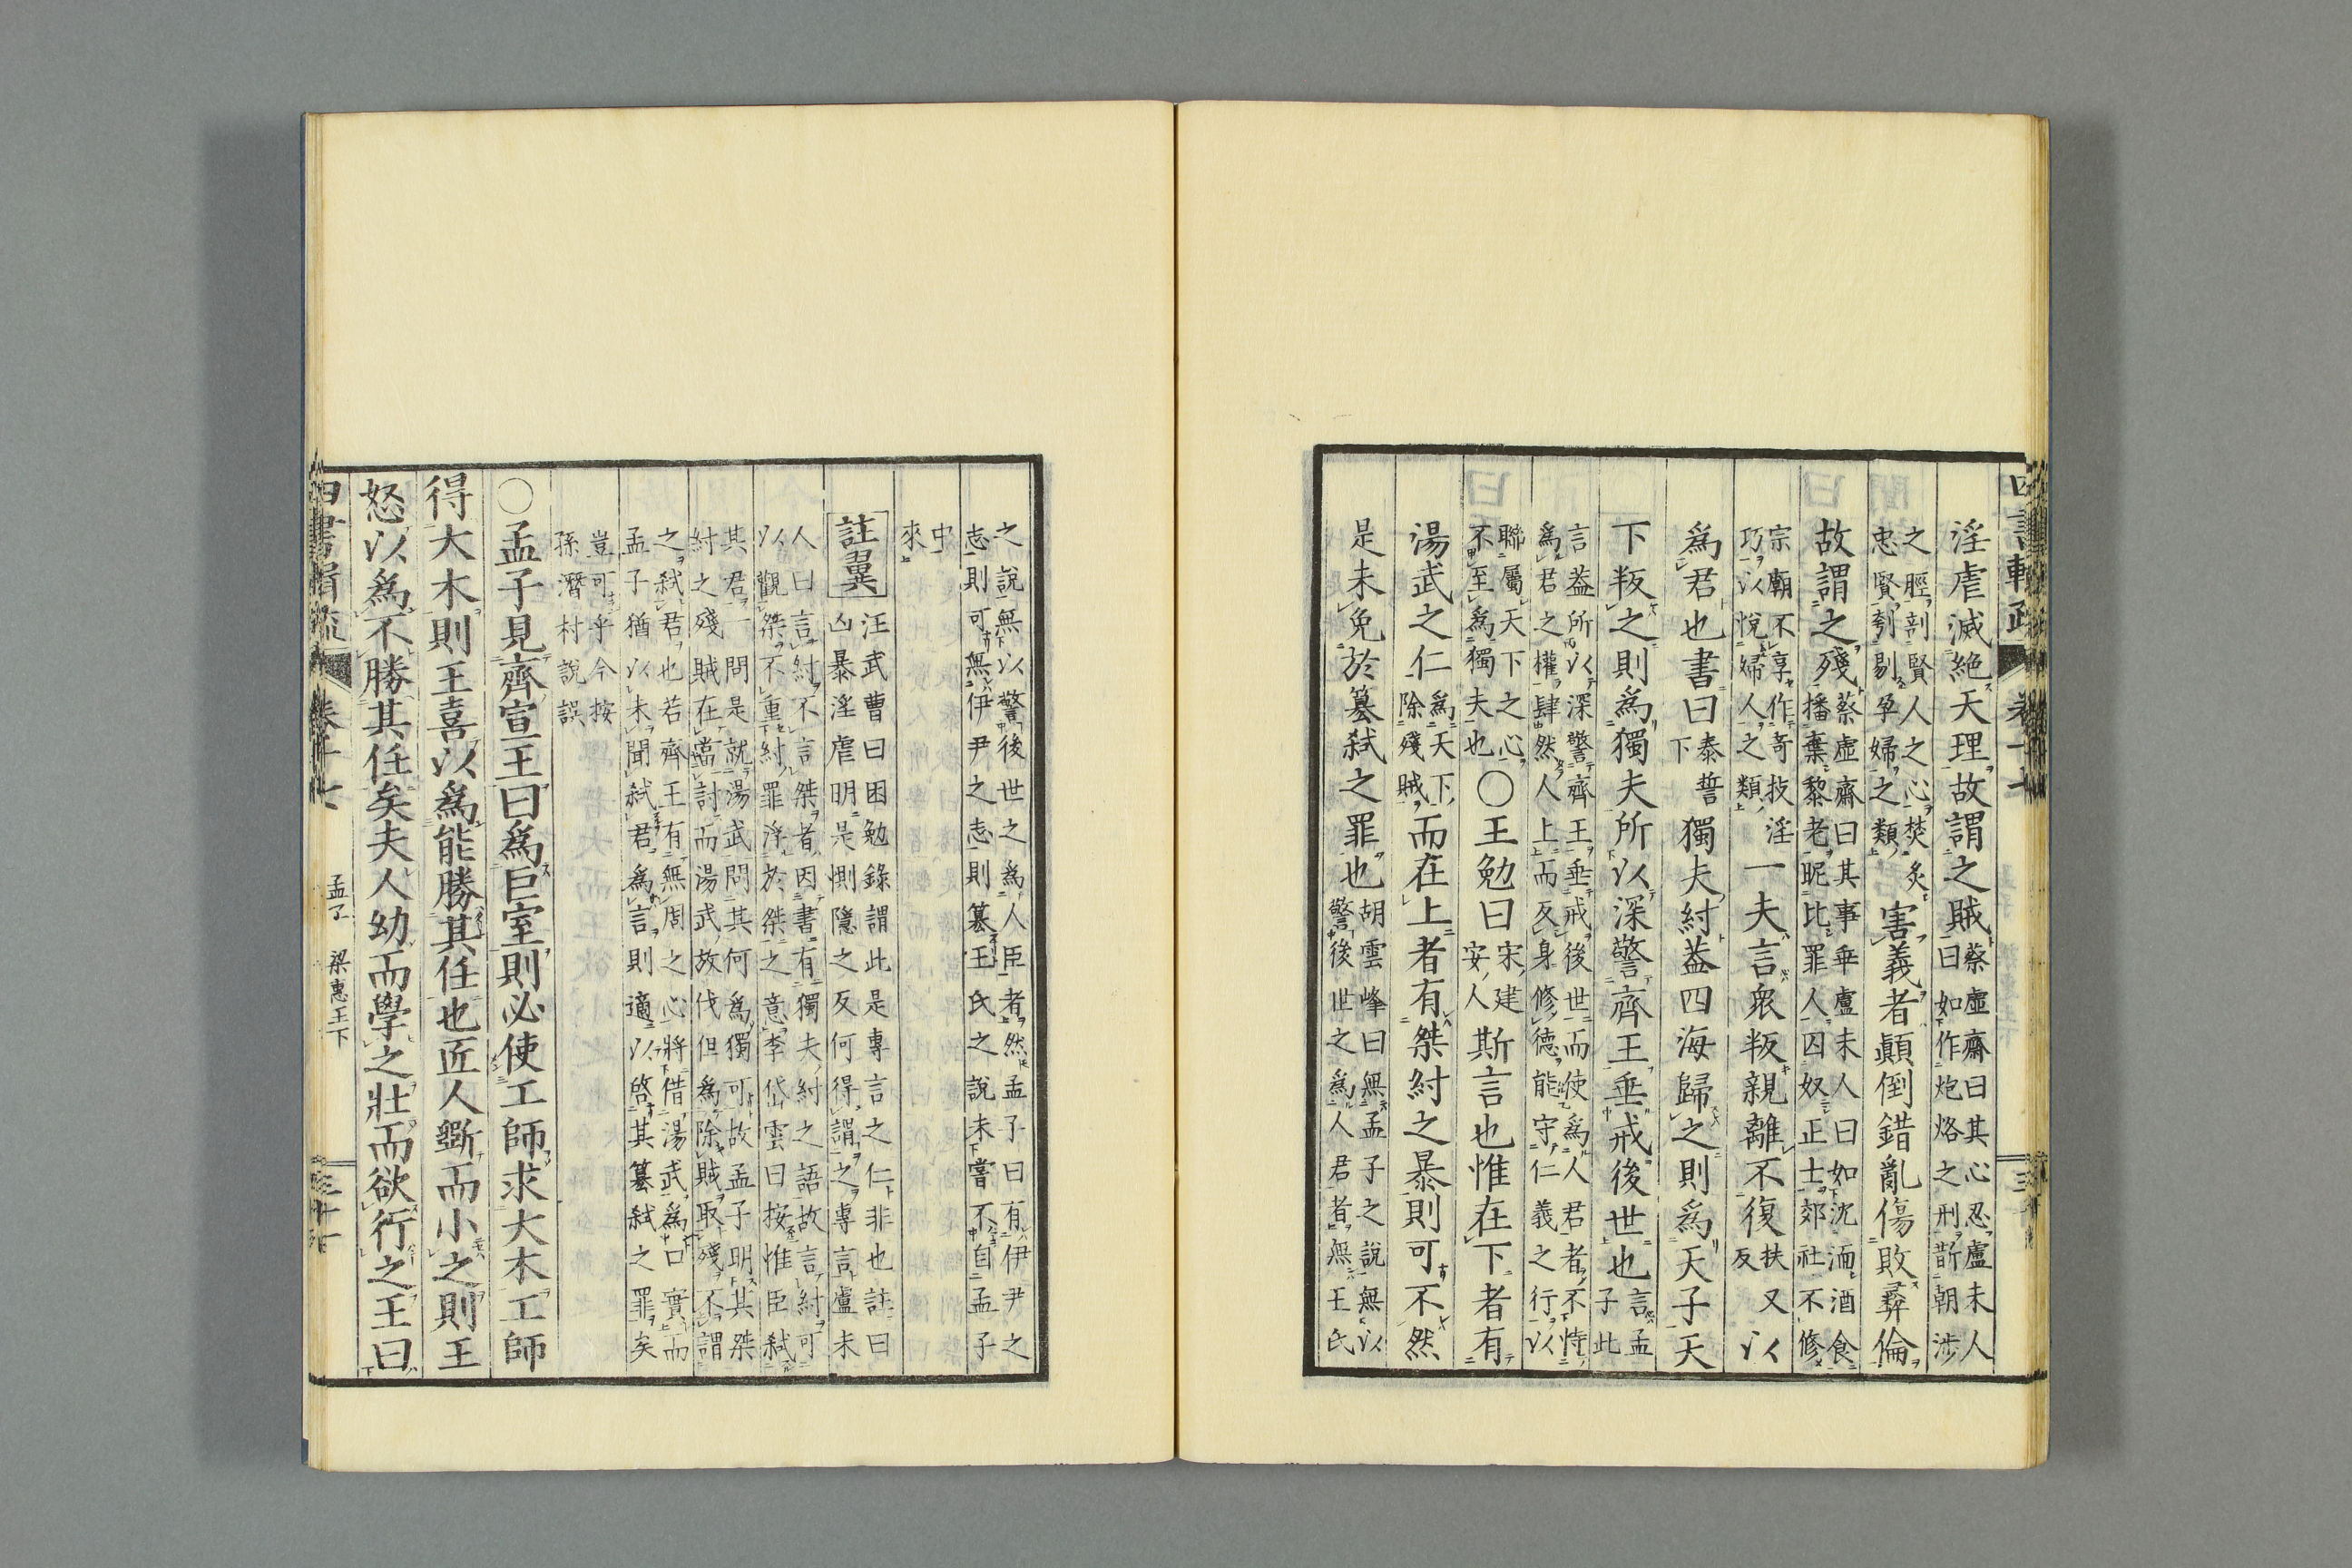 淫虐滅絶天理故謂之賊蔡虛齋曰其心忍盧未人
曰如作炮烙之刑斮朝涉
之脛剖賢人之心焚炙
忠賢刳剔孕婦之類害義者顚倒錯亂傷敗彛倫
故謂之殘蔡虛齋曰其事乖盧未人曰如沈湎酒食
播棄黎老昵比罪人囚奴正士郊社不修
宗廟不享作奇技淫
巧以悅婦人之類一夫言衆叛親離不復扶又反以
爲君也書曰泰誓下獨夫紂葢四海歸之則爲天子天
下叛之則爲獨夫所以深警齊王垂戒後世也言孟子此
言葢所以深警齊王垂戒後世而使爲人君者不恃
爲君之權肆然人上而反身修德能守仁義之行以
聯屬天下之心
不至爲獨夫也○王勉曰宋建安人斯言也惟在下者有
湯武之仁爲天下除殘賊而在上者有桀紂之暴則可不然
是未免於簒弑之罪也胡雲峰曰無孟子之說無以
警後世之爲人君者無王氏
之說無以警後世之爲人臣者然孟子曰有伊尹之
志則可無伊尹之志則簒王氏之說未嘗不自孟子
中
來
註翼汪武曹曰困勉錄謂此是專言之仁非也註曰
凶暴淫虐明是惻隱之反何得謂之專言盧未
人曰言紂不言桀者因書有獨夫紂之語故言紂可
以觀桀不重紂罪浮於桀之意李岱雲曰按惟臣弑
其君一問是就湯武問其何爲獨可故孟子明其桀
紂之殘賊在當討而湯武放伐但爲除賊取殘不謂
之弑君也若齊王有無周之心將借湯武爲口實而
孟子猶以未聞弑君爲言則適以啓其簒弑之罪矣
豈可乎今按
孫潛村說誤
○孟子見齊宣王曰爲巨室則必使工師求大木工師
得大木則王喜以爲能勝其任也匠人斲而小之則王
怒以爲不勝其任矣夫人幼而學之壯而欲行之王曰
四書輯疏 卷十七 孟子 梁惠王下 三十一